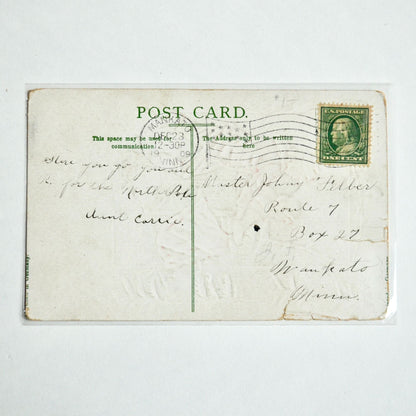 POST CARD.
This space may be used for
communication.
The Address only to be written
here
MANKATO
DEC 23
12-30P
MINN.
U.S. POSTAGE
ONE CENT
Here you go you and
for the North Pole
Aunt Carrie.
Master Johny
Route 7
Box 27
Mankato
Minn.
Germany